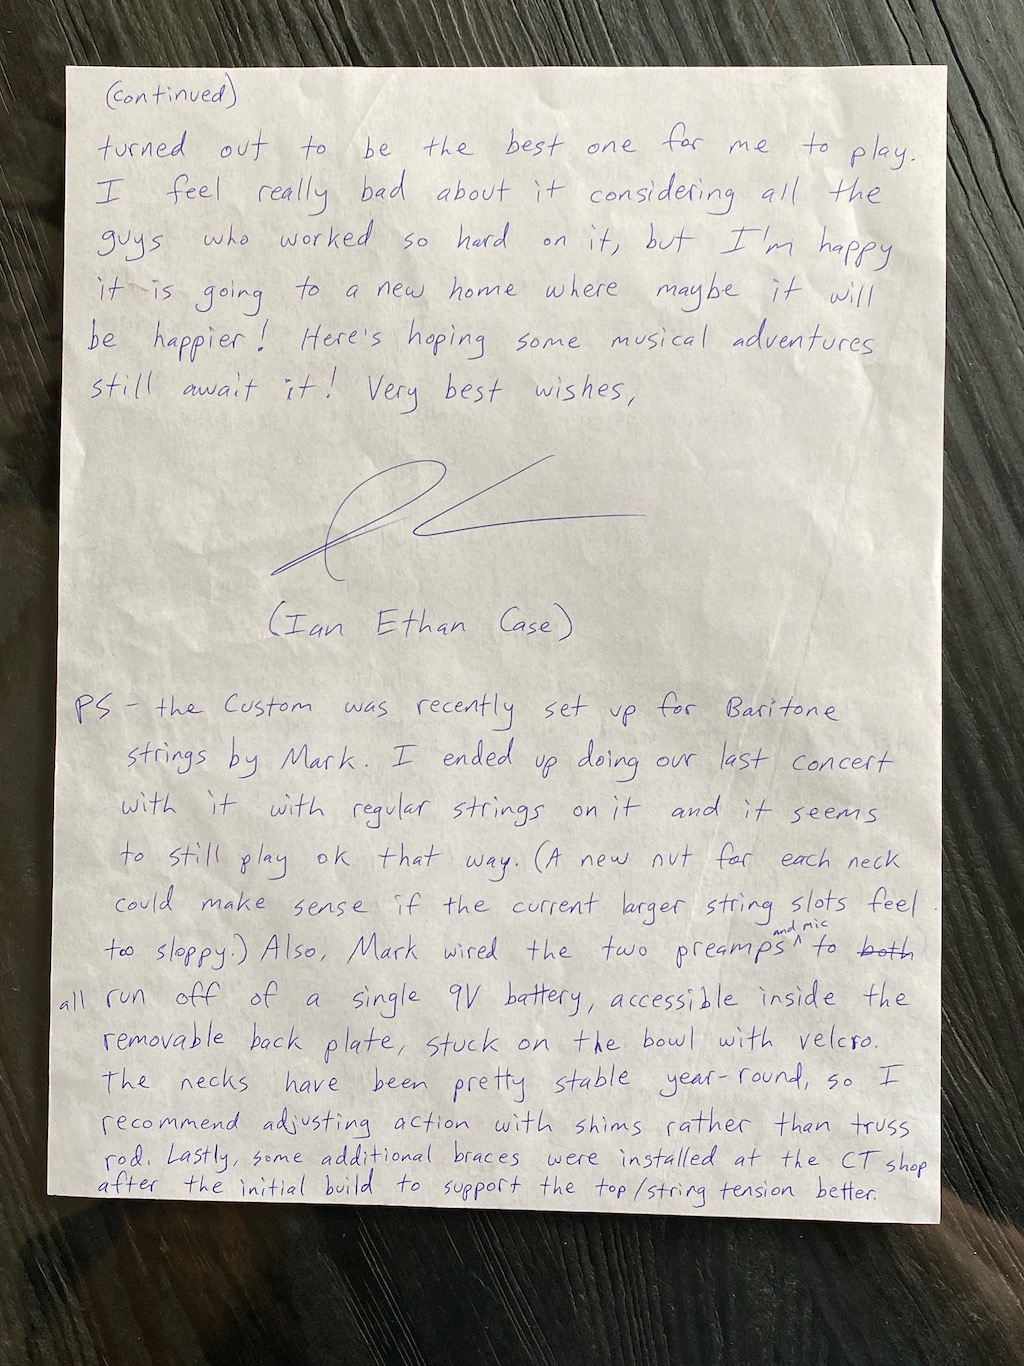 (continued)
turned out to be the best one for me to play.
I feel really bad about it considering all the
guys who worked so hard on it, but I'm happy
it is going to a new home where maybe it will
be happier! Here's hoping some musical adventures
still await it! Very best wishes,
(Ian Ethan Case)
PS - the Custom was recently set up for Baritone
strings by Mark. I ended up doing our last concert
with it with regular strings on it and it seems
to still play ok that way. (A new nut for each neck
could make sense if the current larger string slots feel
too sloppy.) Also, Mark wired the two preamps and mic to both
all run off of a single 9V battery, accessible inside the
removable back plate, stuck on the bowl with velcro.
The necks have been pretty stable year-round, so I
recommend adjusting action with shims rather than truss
rod. Lastly, some additional braces were installed at the CT shop
after the initial build to support the top/string tension better.